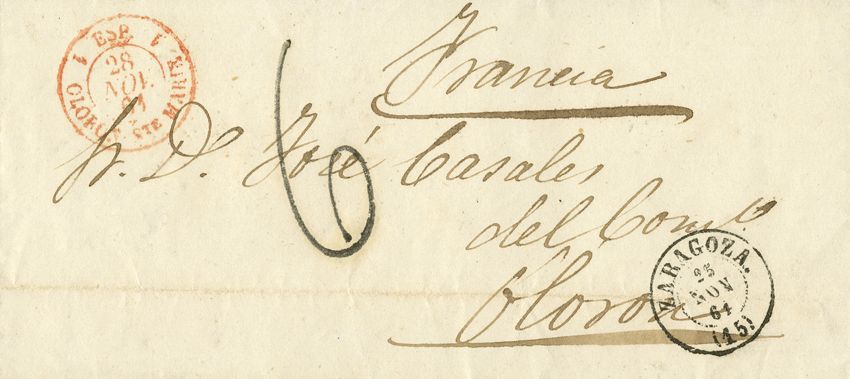 1 ESP. 1
28
NOV.
61
OLORON Ste MARIE
Francia
Sr. D. José Casales
del Como.
Oloron
6
ZARAGOZA.
25
NOV
61
(15)